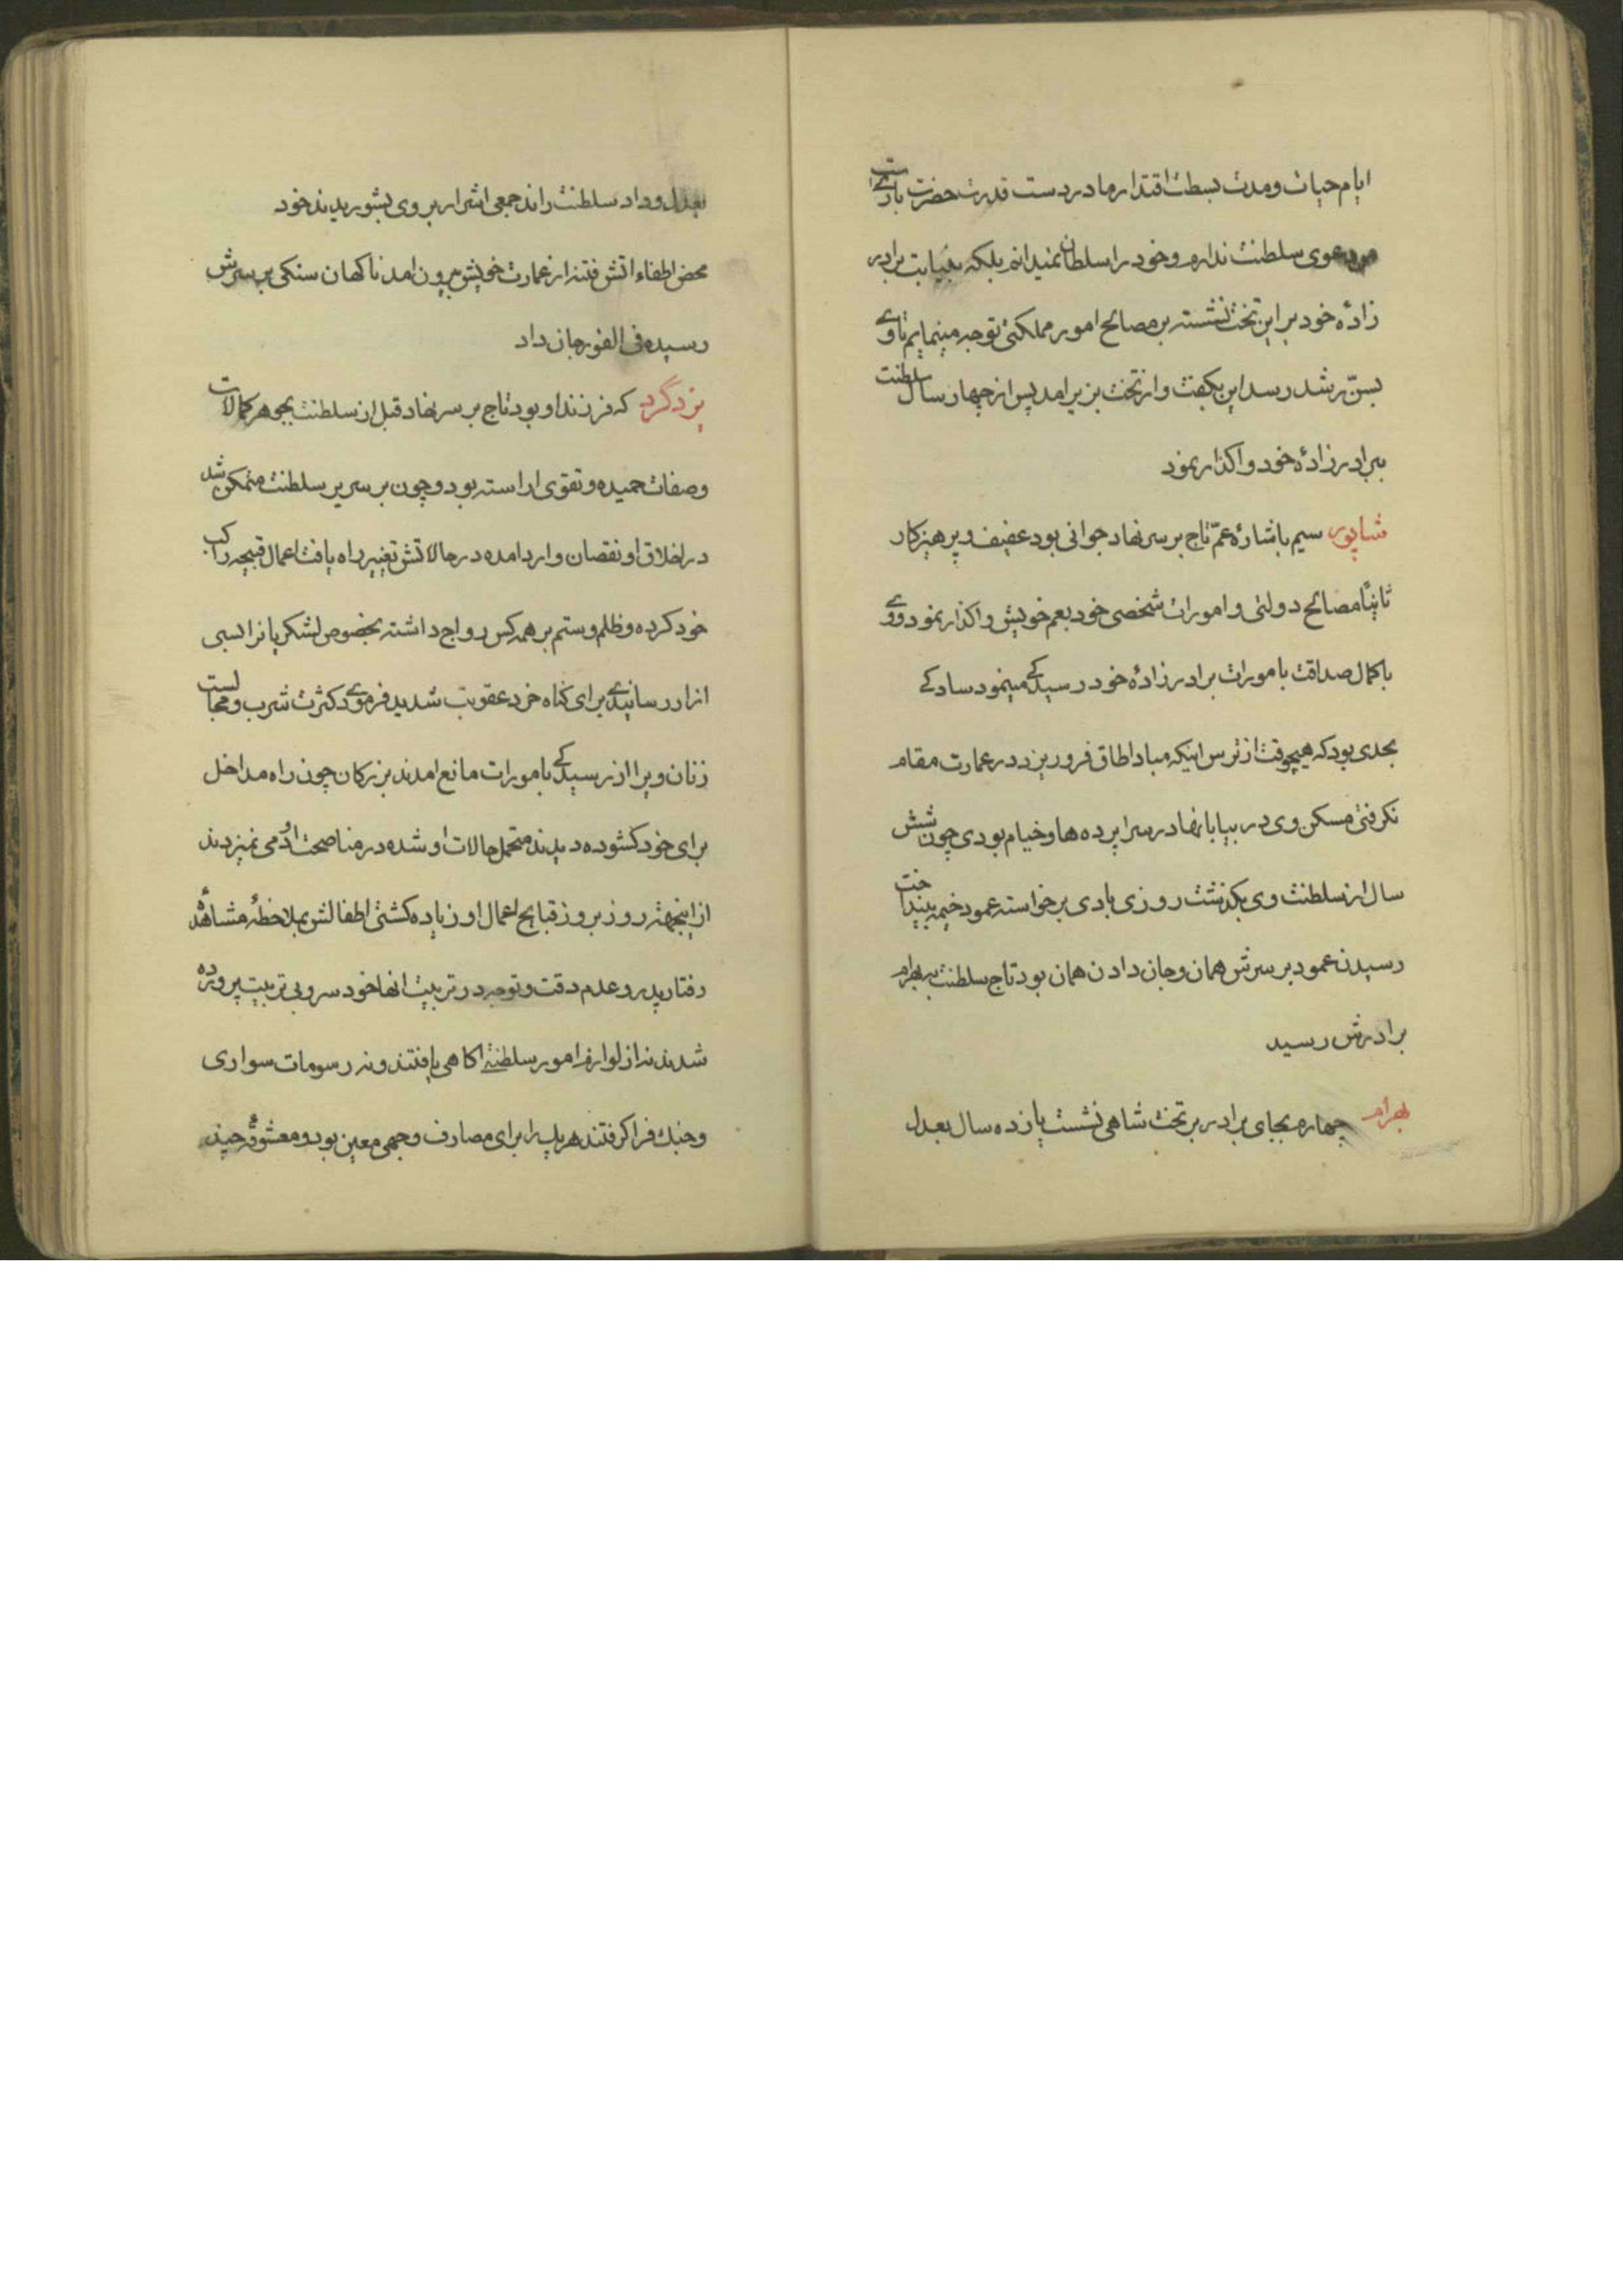 ایام حیات و مدت بسطت اقتدار ما در دست قدرت حضرت باریست
من دعوی سلطنت ندارم و خود را سلطان نمیدانم بلکه بنیابت برادر
زادهٔ خود بر این تخت نشسته بر مصالح امور مملکتی توجه مینمایم تا وی
بسنّ رشد رسد این بکفت و از تخت بزیر امد پس از چهار سال سلطنت
ببرادر زادهٔ خود واکذار نمود
شاپور سیم باشارهٔ عمّ تاج بر سر نهاد جوانی بود عفیف و پرهیزکار
ثانیًا مصالح دولتی و امورات شخصی خود بعم خویش واکذار نمود و وی
با کمال صداقت بامورات برادر زادهٔ خود رسیدکی مینمود سادکی
بحدی بود که هیچوقت از ترس اینکه مبادا طاق فرو ریزد در عمارت مقام
نکرفتی مسکن وی در بیابانها در سراپرده ها و خیام بودی چون شش
سال از سلطنت وی بکذشت روزی بادی برخواسته عمود خیمه بینداخت
رسیدن عمود بر سرش همان و جان دادن همان بود تاج سلطنت ببهرام
برادرش رسید
بهرام چهارم بجای برادر بر تخت شاهی نشست یازده سال بعدل
بعدل و داد سلطنت راند جمعی اشرار بر وی بشوریدند خود
محض اطفاء اتش فتنه از عمارت خویش بیرون امد ناکهان سنکی بر سرش
رسیده فی الفور جان داد
یزدگرد که فرزند او بود تاج بر سر نهاد قبل از سلطنت بجوهر کمالات
و صفات حمیده و تقوی اراسته بود و چون بر سریر سلطنت متمکن شد
در اخلاق او نقصان وارد امده در حالاتش تغییر راه یافت اعمال قبیحه راکب
خود کرده و ظلم و ستم بر همه کس رواج داشته بخصوص لشکریانرا بسی
ازار رسانیدی برای کناه خرد عقوبت شدید فرمودی کثرت شرب و مجالست
زنان ویرا از رسیدکی بامورات مانع امدند بزرکان چون راه مداخل
برای خود کشوده دیدند متحمل حالات او شده در مناصحت او دمی نمیزدند
از اینجهته روز بروز قبایح اعمال او زیاده کشتی اطفالش بملاحظهٔ مشاهدهٔ
رفتار پدر و عدم دقت و توجه در تربیت انها خود سر و بی تربیت پرورده
شدند نه از لوازم امور سلطنة اکاهی یافتند و نه رسومات سواری
و جنك فرا کرفتند هر یك را برای مصارف وجهی معین بود و معشوقهٔ چند